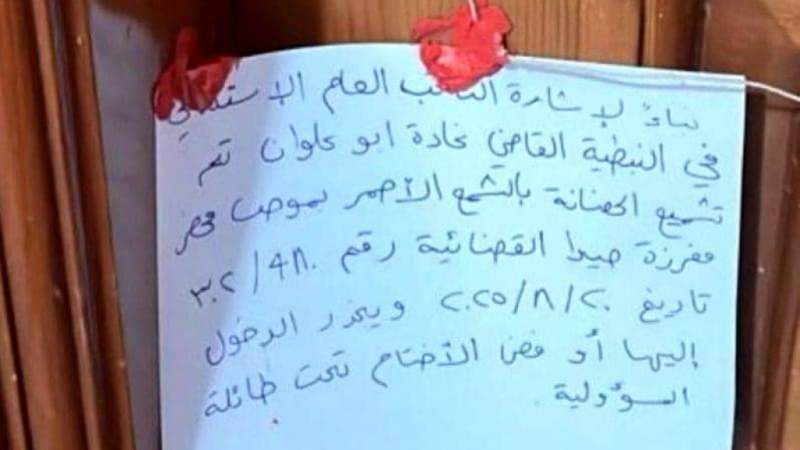 بناءً لإشارة النائب العام الاستئنافي
في النبطية القاضي غادة ابو علوان تم
تشميع الحضانة بالشمع الأحمر بموجب محضر
مفرزة صيدا القضائية رقم ٣٠٢/٤٨٠٠
تاريخ ٢٠٢٥/٨/٢٠ ويحذر الدخول
إليها أو فض الأختام تحت طائلة
المسؤولية.